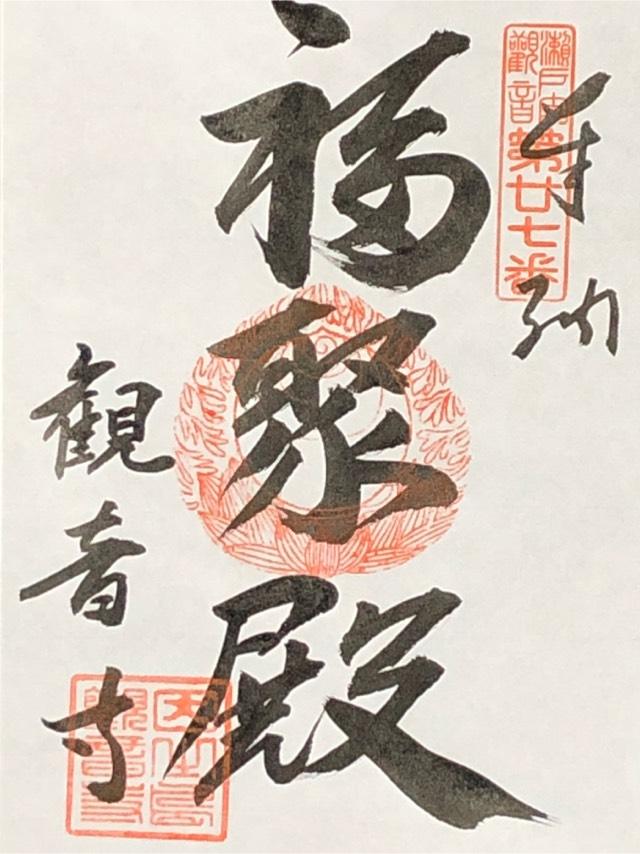 奉納
瀬戸内
觀音第廿七番
福聚殿
観音寺